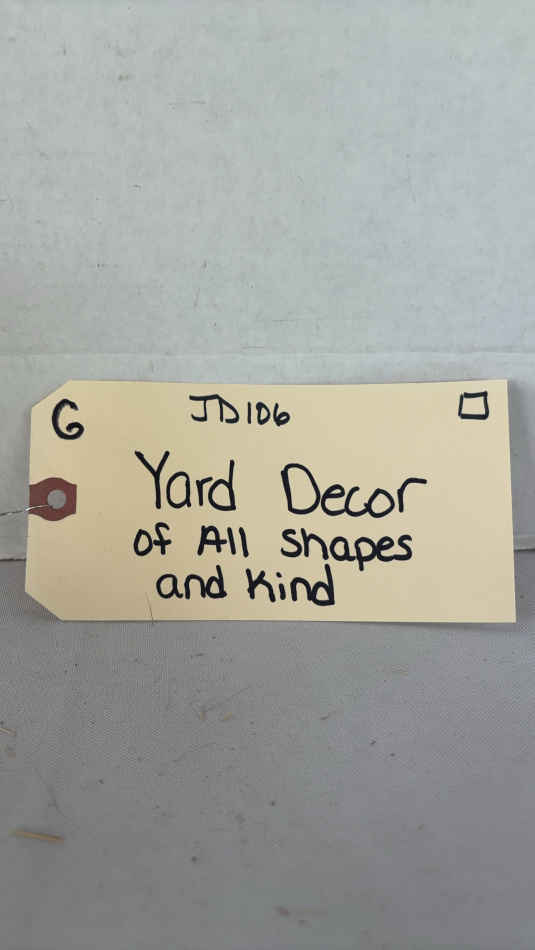 G JD106
Yard Decor
of All shapes
and kind